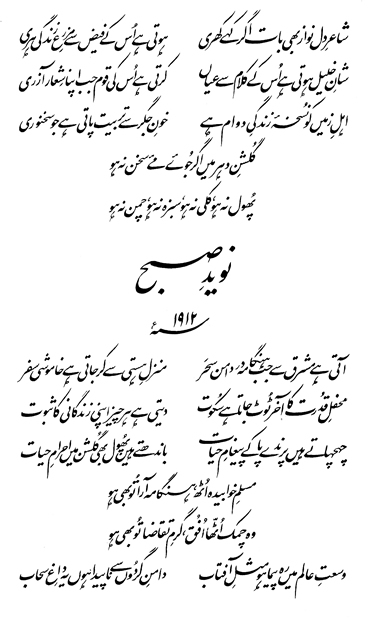 شاعرِ دل نواز بھی بات اگر کہے کھری ہوتی ہے اُس کے فیض سے مزرعِ زندگی ہری
شانِ خلیل ہوتی ہے اُس کے کلام سے عیاں کرتی ہے اُس کی قوم جب اپنا شعار آزری
اہلِ زمیں کو نسخۂ زندگیِ دوام ہے خونِ جگر سے تربیت پاتی ہے جو سخنوری
گلشنِ دہر میں اگر جوئے مئے سخن نہ ہو
پھول نہ ہو کلی نہ ہو سبزہ نہ ہو چمن نہ ہو
نویدِ صبح
۱۹۱۲ء
آتی ہے مشرق سے جب ہنگامہ در دامن سحر منزلِ ہستی سے کر جاتی ہے خاموشی سفر
محفلِ قدرت کا آخر ٹوٹ جاتا ہے سکوت دیتی ہے ہر چیز اپنی زندگانی کا ثبوت
چہچہاتے ہیں پرندے پا کے پیغامِ حیات باندھتے ہیں پھول بھی گلشن میں احرامِ حیات
مسلمِ خوابیدہ اُٹھ ہنگامہ آرا تو بھی ہو
وہ چمک اُٹھا اُفق، گرمِ تقاضا تو بھی ہو
وسعتِ عالم میں رہ پیما ہو مثلِ آفتاب دامنِ گردوں سے ناپیدا ہوں یہ داغِ سحاب